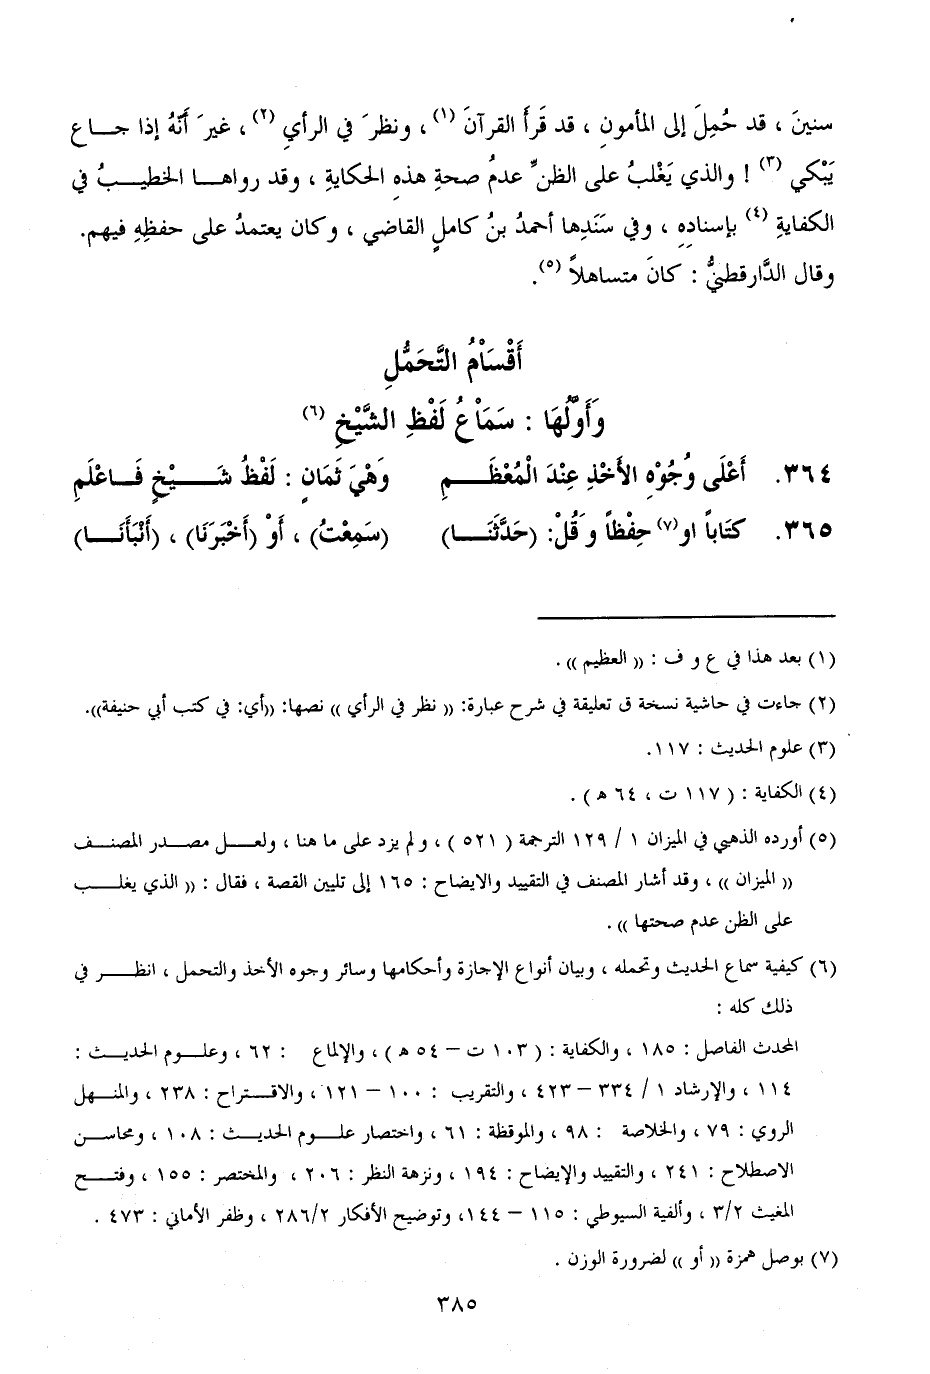 سنينَ ، قد حُمِلَ إلى المأمونِ ، قد قَرأَ القرآنَ (١) ، ونظرَ في الرأيِ (٢) ، غيرَ أنَّهُ إذا جـاع
يَبْكي (٣) ! والذي يَغْلبُ على الظنِّ عدمُ صحةِ هذهِ الحكايةِ ، وقد رواهـا الخطيـبُ في
الكفايةِ (٤) بإسنادِهِ ، وفي سَنَدِها أحمدُ بنُ كاملٍ القاضي ، وكان يعتمدُ على حفظِهِ فيهم.
وقال الدَّارقطنيُّ : كانَ متساهلاً (٥).
أَقْسَاْمُ التَّحَمُّلِ
وَأَوَّلُهَا : سَمَاْعُ لَفْظِ الشَّيْخِ (٦)
٣٦٤. أَعْلَى وُجُوْهِ الأَخْذِ عِنْدَ الْمُعْظَـمِ وَهْيَ ثَمَانٍ : لَفْظُ شَـيْخٍ فَـاعْلَمِ
٣٦٥. كتَاباً او (٧) حِفْظاً وَقُلْ: (حَدَّثَنَـا) (سَمِعْتُ) ، أَوْ (أَخْبَرَنَا) ، (أَنْبَأَنَـا)
(١) بعد هذا في ع و ف : (( العظيم )) .
(٢) جاءت في حاشية نسخة ق تعليقة في شرح عبارة: (( نظر في الرأي )) نصها: ((أي: في كتب أبي حنيفة)).
(٣) علوم الحديث : ١١٧.
(٤) الكفاية : ( ١١٧ ت ، ٦٤ ه ) .
(٥) أورده الذهبي في الميزان ١ / ١٢٩ الترجمة ( ٥٢١ ) ، ولم يزد على ما هنا ، ولعـل مصـدر المصنـف
(( الميزان )) ، وقد أشار المصنف في التقييد والايضاح : ١٦٥ إلى تليين القصة ، فقال : (( الذي يغلـب
على الظن عدم صحتها )) .
(٦) كيفية سماع الحديث وتحمله ، وبيان أنواع الإجازة وأحكامها وسائر وجوه الأخذ والتحمل ، انظـر في
ذلك كله :
المحدث الفاصل : ١٨٥ ، والكفاية : ( ١٠٣ ت – ٥٤ ه ) ، والإلماع : ٦٢ ، وعلـوم الحديـث :
١١٤ ، والإرشاد ١ / ٣٣٤ – ٤٢٣ ، والتقريب : ١٠٠ – ١٢١ ، والاقـتراح : ٢٣٨ ، والمنـهل
الروي : ٧٩ ، والخلاصة : ٩٨ ، والموقظة : ٦١ ، واختصار علـوم الحديـث : ١٠٨ ، ومحاسـن
الاصطلاح : ٢٤١ ، والتقييد والإيضاح : ١٩٤ ، ونزهة النظر : ٢٠٦ ، والمختصر : ١٥٥ ، وفتـح
المغيث ٣/٢ ، وألفية السيوطي : ١١٥ – ١٤٤، وتوضيح الأفكار ٢٨٦/٢ ، وظفر الأماني : ٤٧٣ .
(٧) بوصل همزة (( أو )) لضرورة الوزن .
٣٨٥